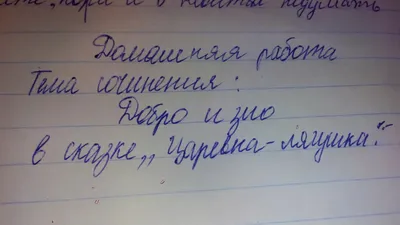 пора и в
подумать
Домашняя работа
Тема сочинения:
Добро и зло
в сказке „Царевна-лягушка".